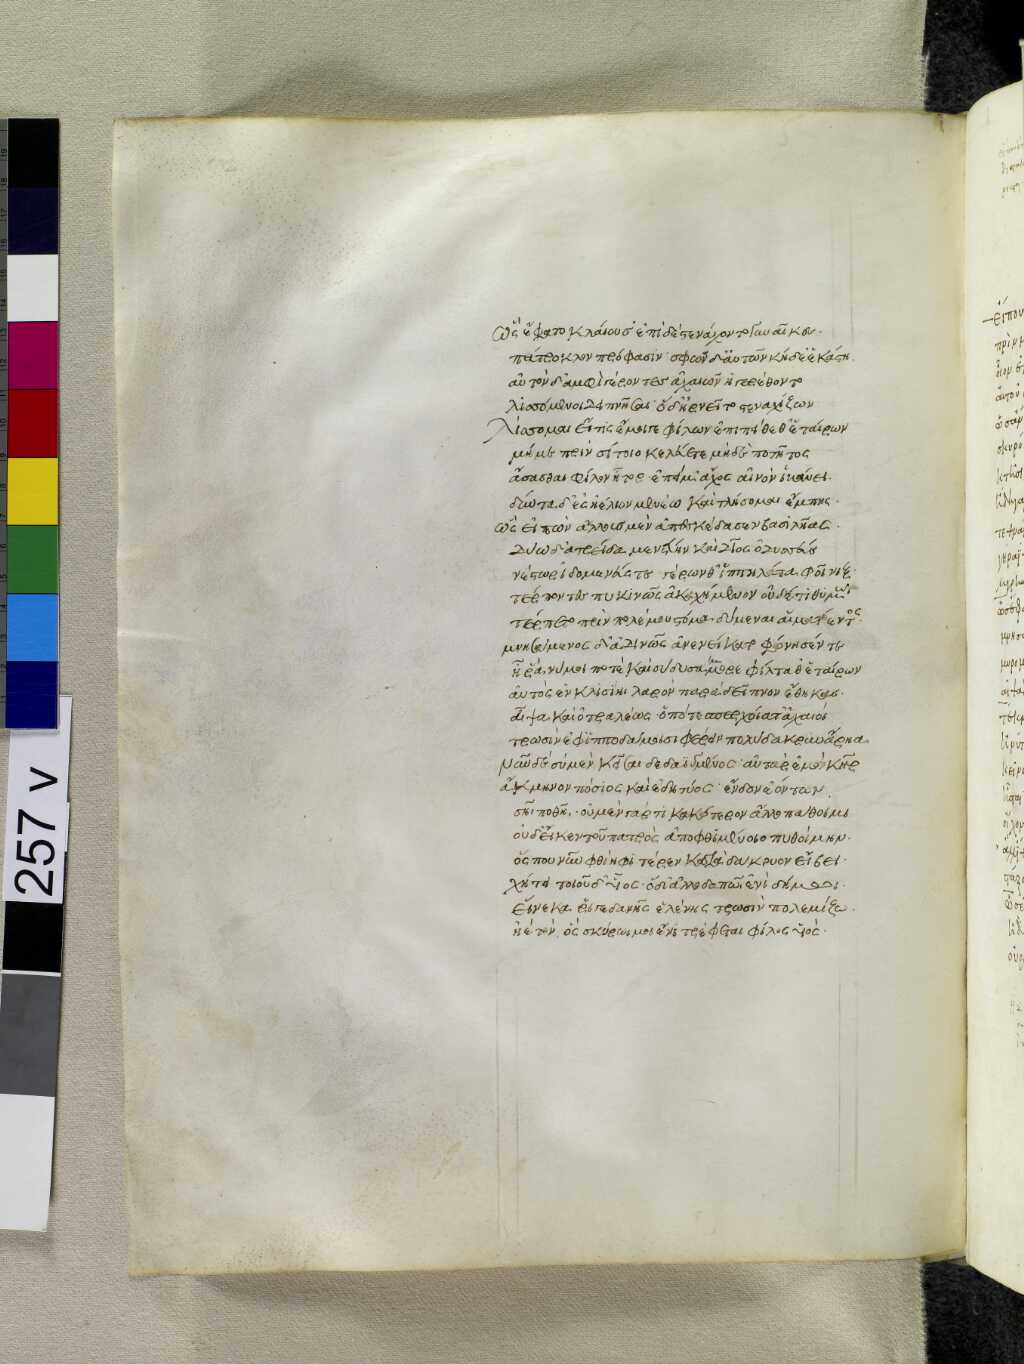 ὣς ἔφατο κλαίουσ' ἐπὶ δὲ στενάχοντο γυναῖκες·
πάτροκλον πρόφασιν· σφῶν δ' αὐτῶν κήδε' ἑκάστη.
αὐτὸν δ' ἀμφὶ γέροντες ἀχαιῶν ἠγερέθοντο
λισσόμενοι δειπνῆσαι· ὁ δ' ἠρνεῖτο στεναχίζων
λίσσομαι εἴ τις ἔμοιγε φίλων ἐπιπείθεθ' ἑταίρων
μή με πρὶν σίτοιο κελεύετε μηδὲ ποτῆτος
ἄσασθαι φίλον ἦτορ· ἐπεί μ' ἄχος αἰνὸν ἱκάνει·
δύντα δ' ἐς ἠέλιον μενέω καὶ τλήσομαι ἔμπης·
ὣς εἰπὼν ἄλλους μὲν ἀπεσκέδασεν βασιλῆας·
δύω δ' ἀτρείδα μενέτην καὶ δῖος ὀδυσσεύς
νέστωρ ἰδομενεύς τε γέρων θ' ἱππηλάτα φοῖνιξ·
τέρποντες πυκινῶς ἀκαχήμενον οὐδέ τι θυμῷ
τέρπετο πρὶν πολέμου στόμα δύμεναι αἱματόεντος·
μνησάμενος δ' ἁδινῶς ἀνενείκατο φώνησέν τε
ἦ ῥά νύ μοι ποτὲ καὶ σὺ δυσάμμορε φίλταθ' ἑταίρων
αὐτὸς ἐνὶ κλισίηι λαρὸν παρὰ δεῖπνον ἔθηκας·
αἶψα καὶ ὀτραλέως· ὁπότε σπερχοίατ' ἀχαιοί
τρωσὶν ἐφ' ἱπποδάμοισι φέρειν πολύδακρυν ἄρηα
νῦν δὲ σὺ μὲν κεῖσαι δεδαϊγμένος· αὐτὰρ ἐμὸν κῆρ
ἄκμηνον πόσιος καὶ ἐδητύος· ἔνδον ἐόντων
σῆι ποθῆι· οὐ μὲν γάρ τι κακώτερον ἄλλο πάθοιμι
οὐδ' εἴ κεν τοῦ πατρὸς ἀποφθιμένοιο πυθοίμην·
ὅς που νῦν φθίηφι τέρεν κατὰ δάκρυον εἴβει·
χήτεϊ τοιοῦδ' υἷος· ὁ δ' ἀλλοδαπῶι ἐνὶ δήμωι·
εἵνεκα ῥιγεδανῆς ἑλένης τρωσὶν πολεμίζω·
ἠὲ τὸν ὃς σκύρωι μοι ἔνι τρέφεται φίλος υἱός·